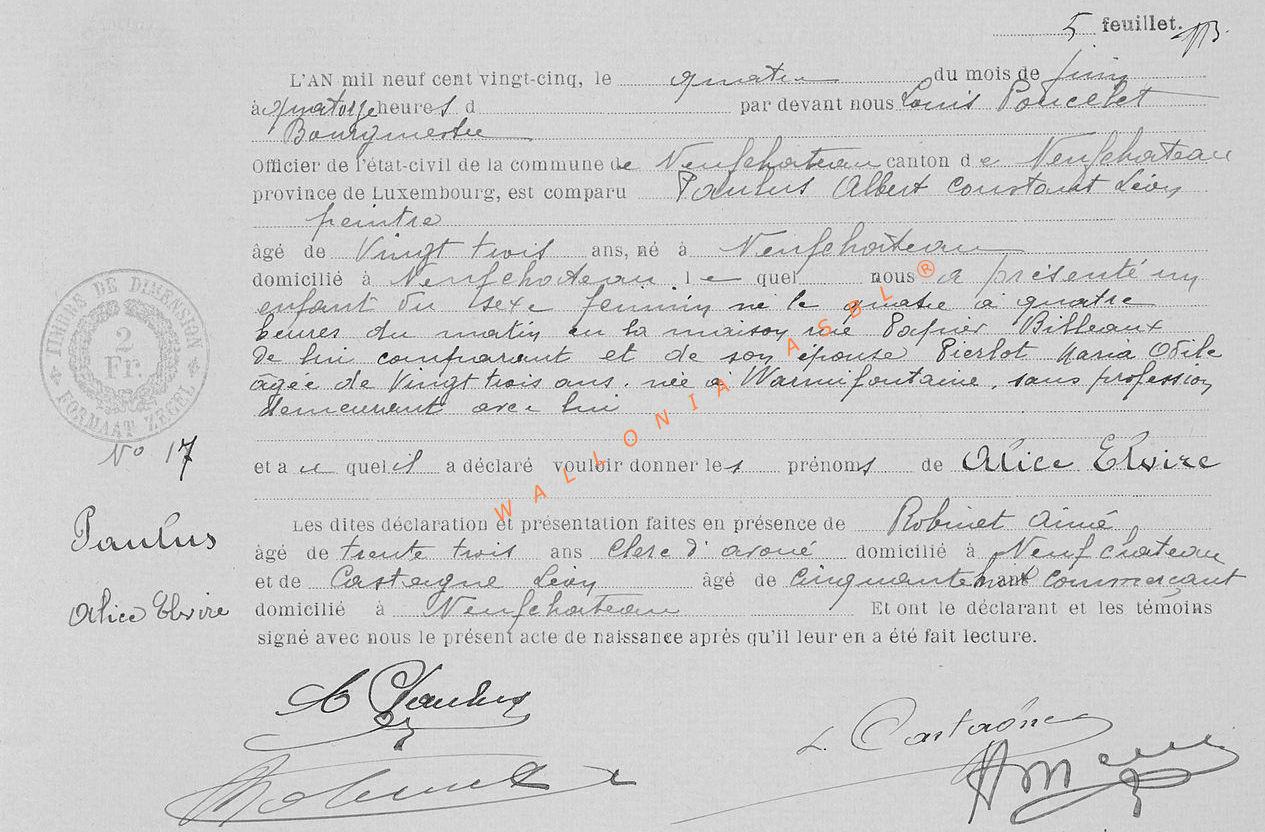 5 feuillet.
L'AN mil neuf cent vingt-cinq, le quatre du mois de juin
à quatorze heures d par devant nous Louis Poncelet
Bourgmestre
Officier de l'état-civil de la commune de Neufchateau canton de Neufchateau
province de Luxembourg, est comparu Paulus Albert Constant Léon
peintre
âgé de Vingt trois ans, né à Neufchateau
domicilié à Neufchateau le quel nous a présenté un
enfant du sexe féminin né le quatre à quatre
heures du matin en la maison rue Billeaux
de lui comparant et de son épouse Pierlot Maria Odile
âgée de Vingt trois ans, née à Warmifontaine, sans profession
demeurant avec lui
et au quel il a déclaré vouloir donner les prénoms de Alice Elvire
Les dites déclaration et présentation faites en présence de Robinet Aimé
âgé de trente trois ans Clerc d'avoué domicilié à Neufchateau
et de Castaigne Léon âgé de cinquante commerçant
domicilié à Neufchateau Et ont le déclarant et les témoins
signé avec nous le présent acte de naissance après qu'il leur en a été fait lecture.
TIMBRE DE DIMENSION
2
Fr.
FORMAAT ZEGEL
No 17
Paulus
Alice Elvire
A Paulus
L. Castaigne
Robinet
WALLONIA ASBL ®